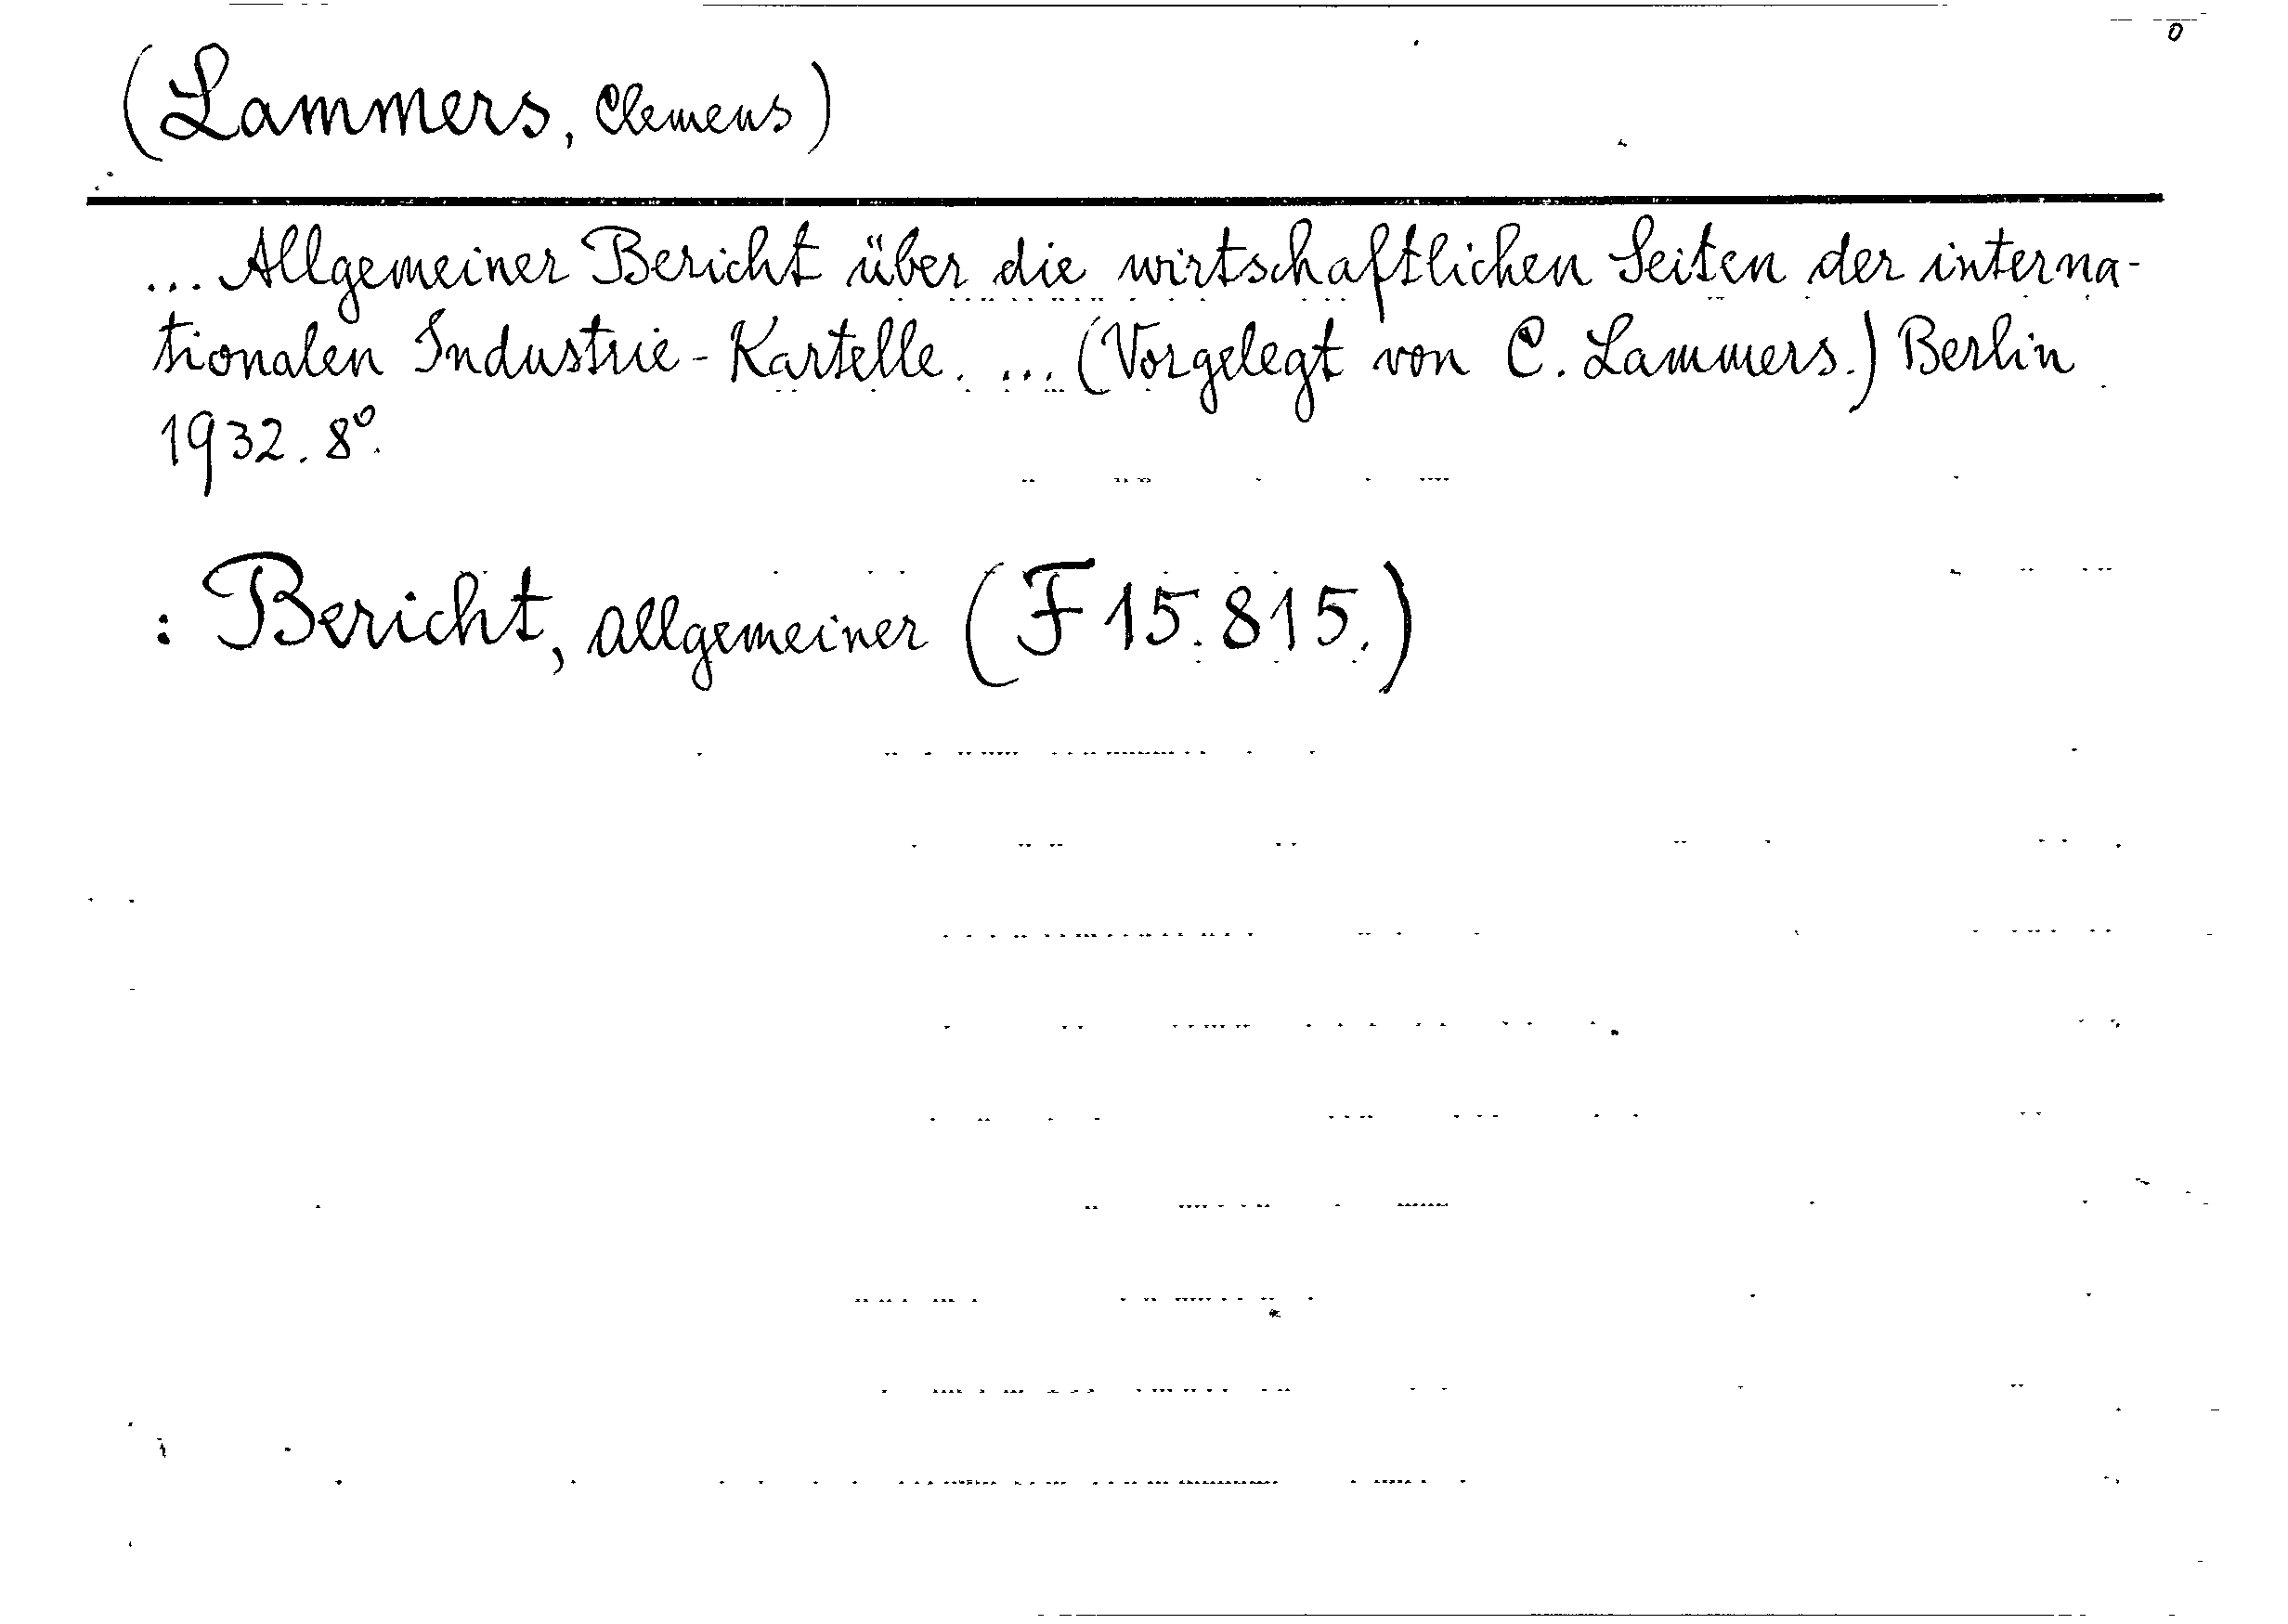 (Lammers, Clemens)
... Allgemeiner Bericht über die wirtschaftlichen Seiten der interna-
tionalen Industrie-Kartelle. ... (Vorgelegt von C. Lammers.) Berlin
1932. 8º.
: Bericht, allgemeiner (F 15.815.)